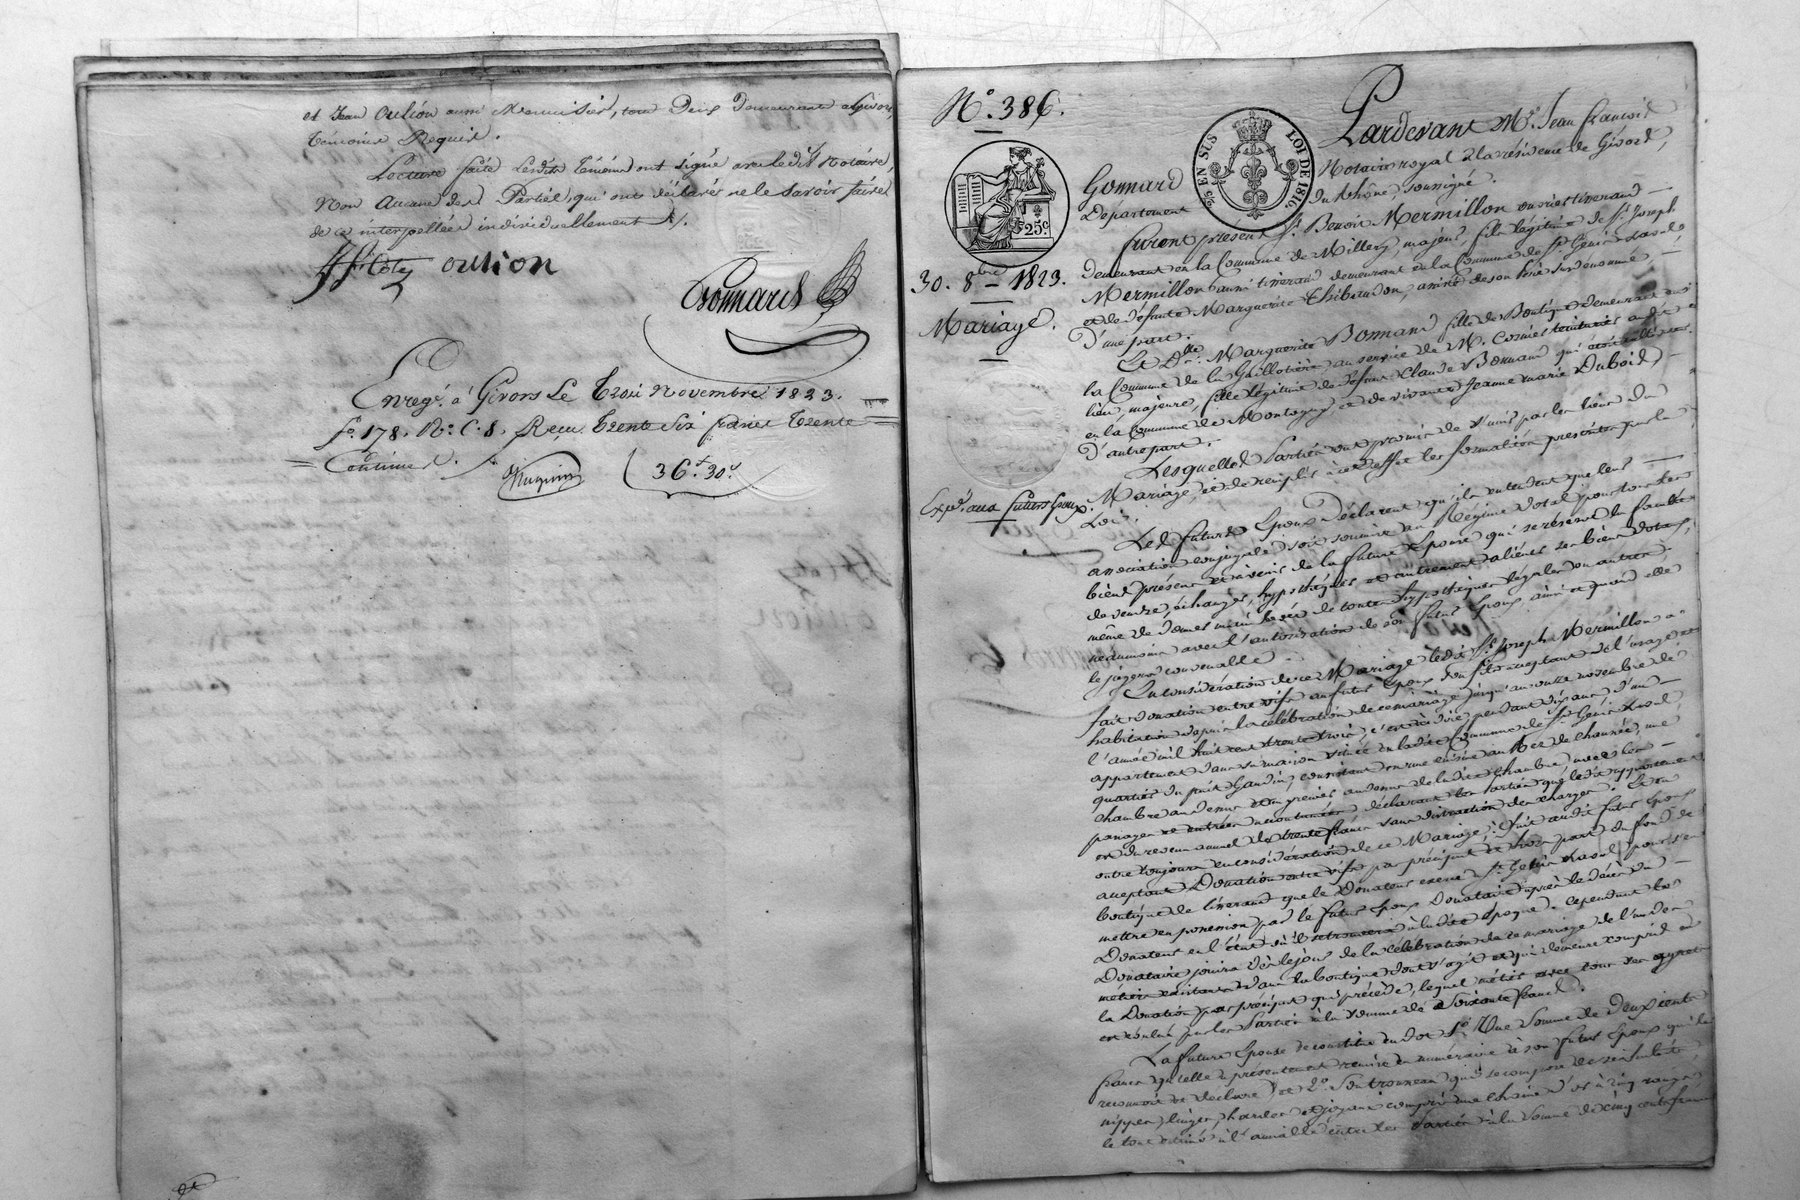 et Jean Oulion aussi Menuisier, tous Deux demeurant à Givors,
témoins Requis.
Lecture faite Lesdits témoins ont signé avec ledit Notaire,
Non Aucune des Parties, qui ont déclaré ne le savoir faire
de ce interpellées individuellement ./.
oulion
Gonnard
Enregé. à Givors Le Trois Novembre 1823.
fo. 178. Ro. C. 8. Reçu Trente Six francs Trente
Centimes.
36.f 30.c
No. 386.
30. 8bre 1823.
Mariage.
Expé. aux futurs Epoux.
25c
EN SUS
LOI DE 1816
Pardevant Me. Jean François
Gonnard Notaire royal à la résidence de Givors,
Département du Rhône, soussigné.
Furent présens Sr. Benoit Mermillon ouvrier tisserand
demeurant en la Commune de Millery, majeur, fils légitime de Sr. Joseph
Mermillon aussi tisserand demeurant en la Commune de St. Genis Laval
et de défunte Marguerite Thibaudon, assisté de son Père susdénommé,
d'une part.
Et Dlle. Marguerite Bonnand fille de Boutique demeurant en
la Commune de la Guillotière au service de M. teinturier au dit
lieu, majeure, fille légitime de défunt Claude Bonnand qui
en la Commune de Montagny et de vivante Jeanne Marie Duboid,
d'autre part.
Lesquelles Parties ont promis de s'unir par les liens du
Mariage, et de remplir à cet effet les formalités prescrites par la
Loi.
Les futurs Epoux Déclarent qu'ils entendent que leur
association conjugale soit soumise au Régime dotal pour tous les
biens présens et à venir de la future Epouse qui se réserve la faculté
de vendre, échanger, hypothéquer et autrement aliéner ses biens dotaux,
même de donner main levée de toutes hypothèques légales ou autres
néanmoins avec l'autorisation de son futur Epoux, ainsi et quand elle
le jugera convenable.
En considération de ce Mariage ledit Sr. Joseph Mermillon a
fait donation entre vifs au futur Epoux son fils acceptant de l'usage et
habitation depuis la célébration de ce mariage jusqu'au onze novembre de
l'année mil huit cent trente trois, c'est à dire pendant dix ans, d'un
appartement dans sa maison située en ladite Commune de St. Genis Laval
quartier du puit Gandin, consistant en une cuisine au Rez de chaussée, une
chambre au dessus et un grenier au dessus de ladite Chambre, avec les
passages et entrées accoutumées déclarant les Parties que ledit appartement
est du revenu annuel de trente francs sans distraction des charges. Et en
outre toujours en considération de ce Mariage, il fait audit futur Epoux
acceptant Donation entre vifs par préciput et hors part du fond de
boutique de tisserand que le Donateur exerce à St. Genis Laval pour s'en
mettre en possession par le futur Epoux Donataire après le décès du
Donateur en l'état où il se trouvera à ladite époque. Cependant le
Donataire jouira dès le jour de la célébration de ce mariage de l'un des
métiers existans dans la boutique dont s'agit et qui demeure compris en
la Donation par préciput qui précède, lequel métier avec tous ses agrets
est évalué par les Parties à la somme de Soixante francs.
La future Epouse se constitue en dot 1o. Une Somme de Deux cents
francs qu'elle a présentement remise en numéraire à son futur Epoux qui le
reconnait et déclare, et 2o. Son trousseau qui se compose de ses
nippes, linges, hardes et joyaux compris une chaine d'or à cinq rangs
le tout estimé à l'amiable entre les Parties à la somme de cinq cents francs